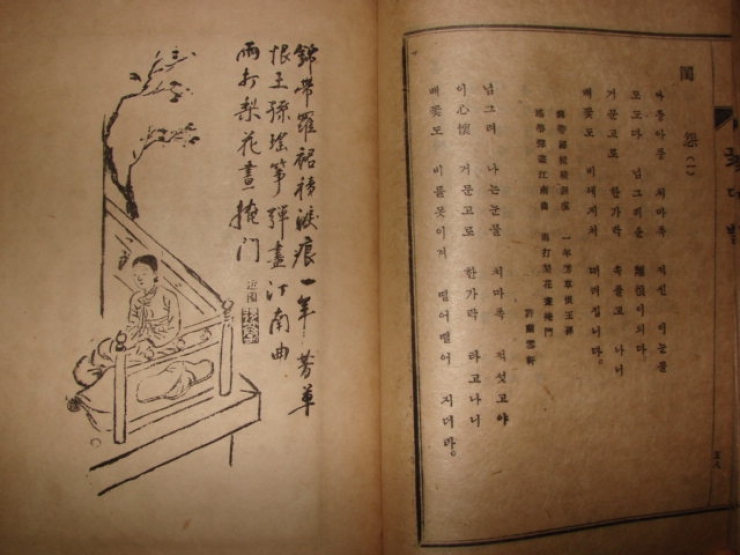 꽃다발
閨怨(一)
아롱아롱 치마폭 적신 이눈물
모도다 님그리운 離恨이외다
거문고로 한가락 속풀고 나니
배꽃도 비에저저 떠러집니다。
錦帶羅裙積淚痕 一年芳草恨王孫
瑤箏彈盡江南曲 雨打梨花晝掩門
許蘭雪軒
님그려 나는눈물 치마폭 적섯고야
이心懷 거문고로 한가락 타고나니
배꽃도 이를못이겨 떨어떨어 지더라。
五八
錦帶羅裙積淚痕一年芳草
恨王孫瑤箏彈盡江南曲
雨打梨花晝掩门